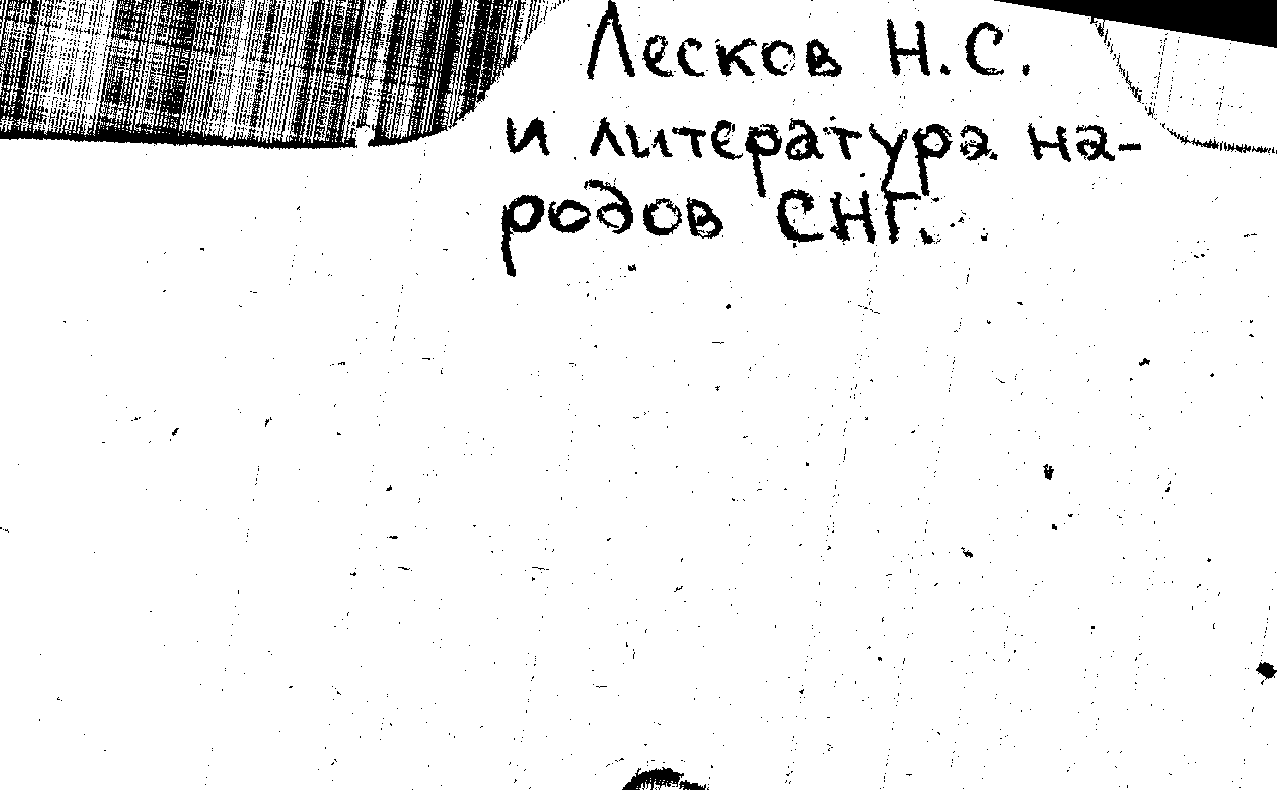 Лесков Н.С.
и литература на-
родов СНГ.